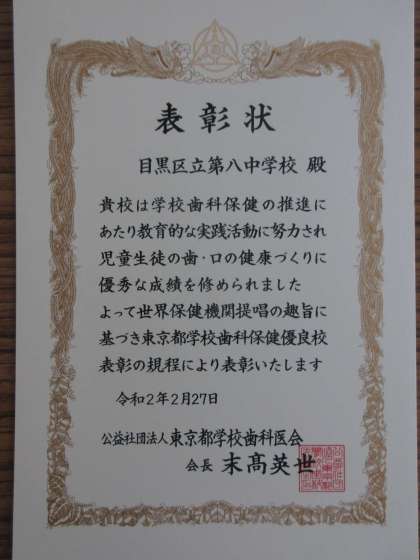 表彰状
目黒区立第八中学校 殿
貴校は学校歯科保健の推進に
あたり教育的な実践活動に努力され
児童生徒の歯・口の健康づくりに
優秀な成績を修められました
よって世界保健機関提唱の趣旨に
基づき東京都学校歯科保健優良校
表彰の規程により表彰いたします
令和2年2月27日
公益社団法人 東京都学校歯科医会
会長 末髙英世